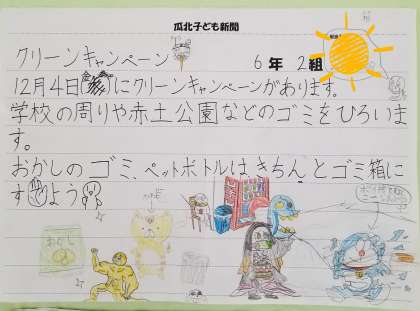 瓜北子ども新聞
クリーンキャンペーン
6年 2組
12月4日(金)にクリーンキャンペーンがあります。
学校の周りや赤土公園などのゴミをひろいま
す。
おかしのゴミ、ペットボトルは、きちんとゴミ箱に
すてよう
おかし